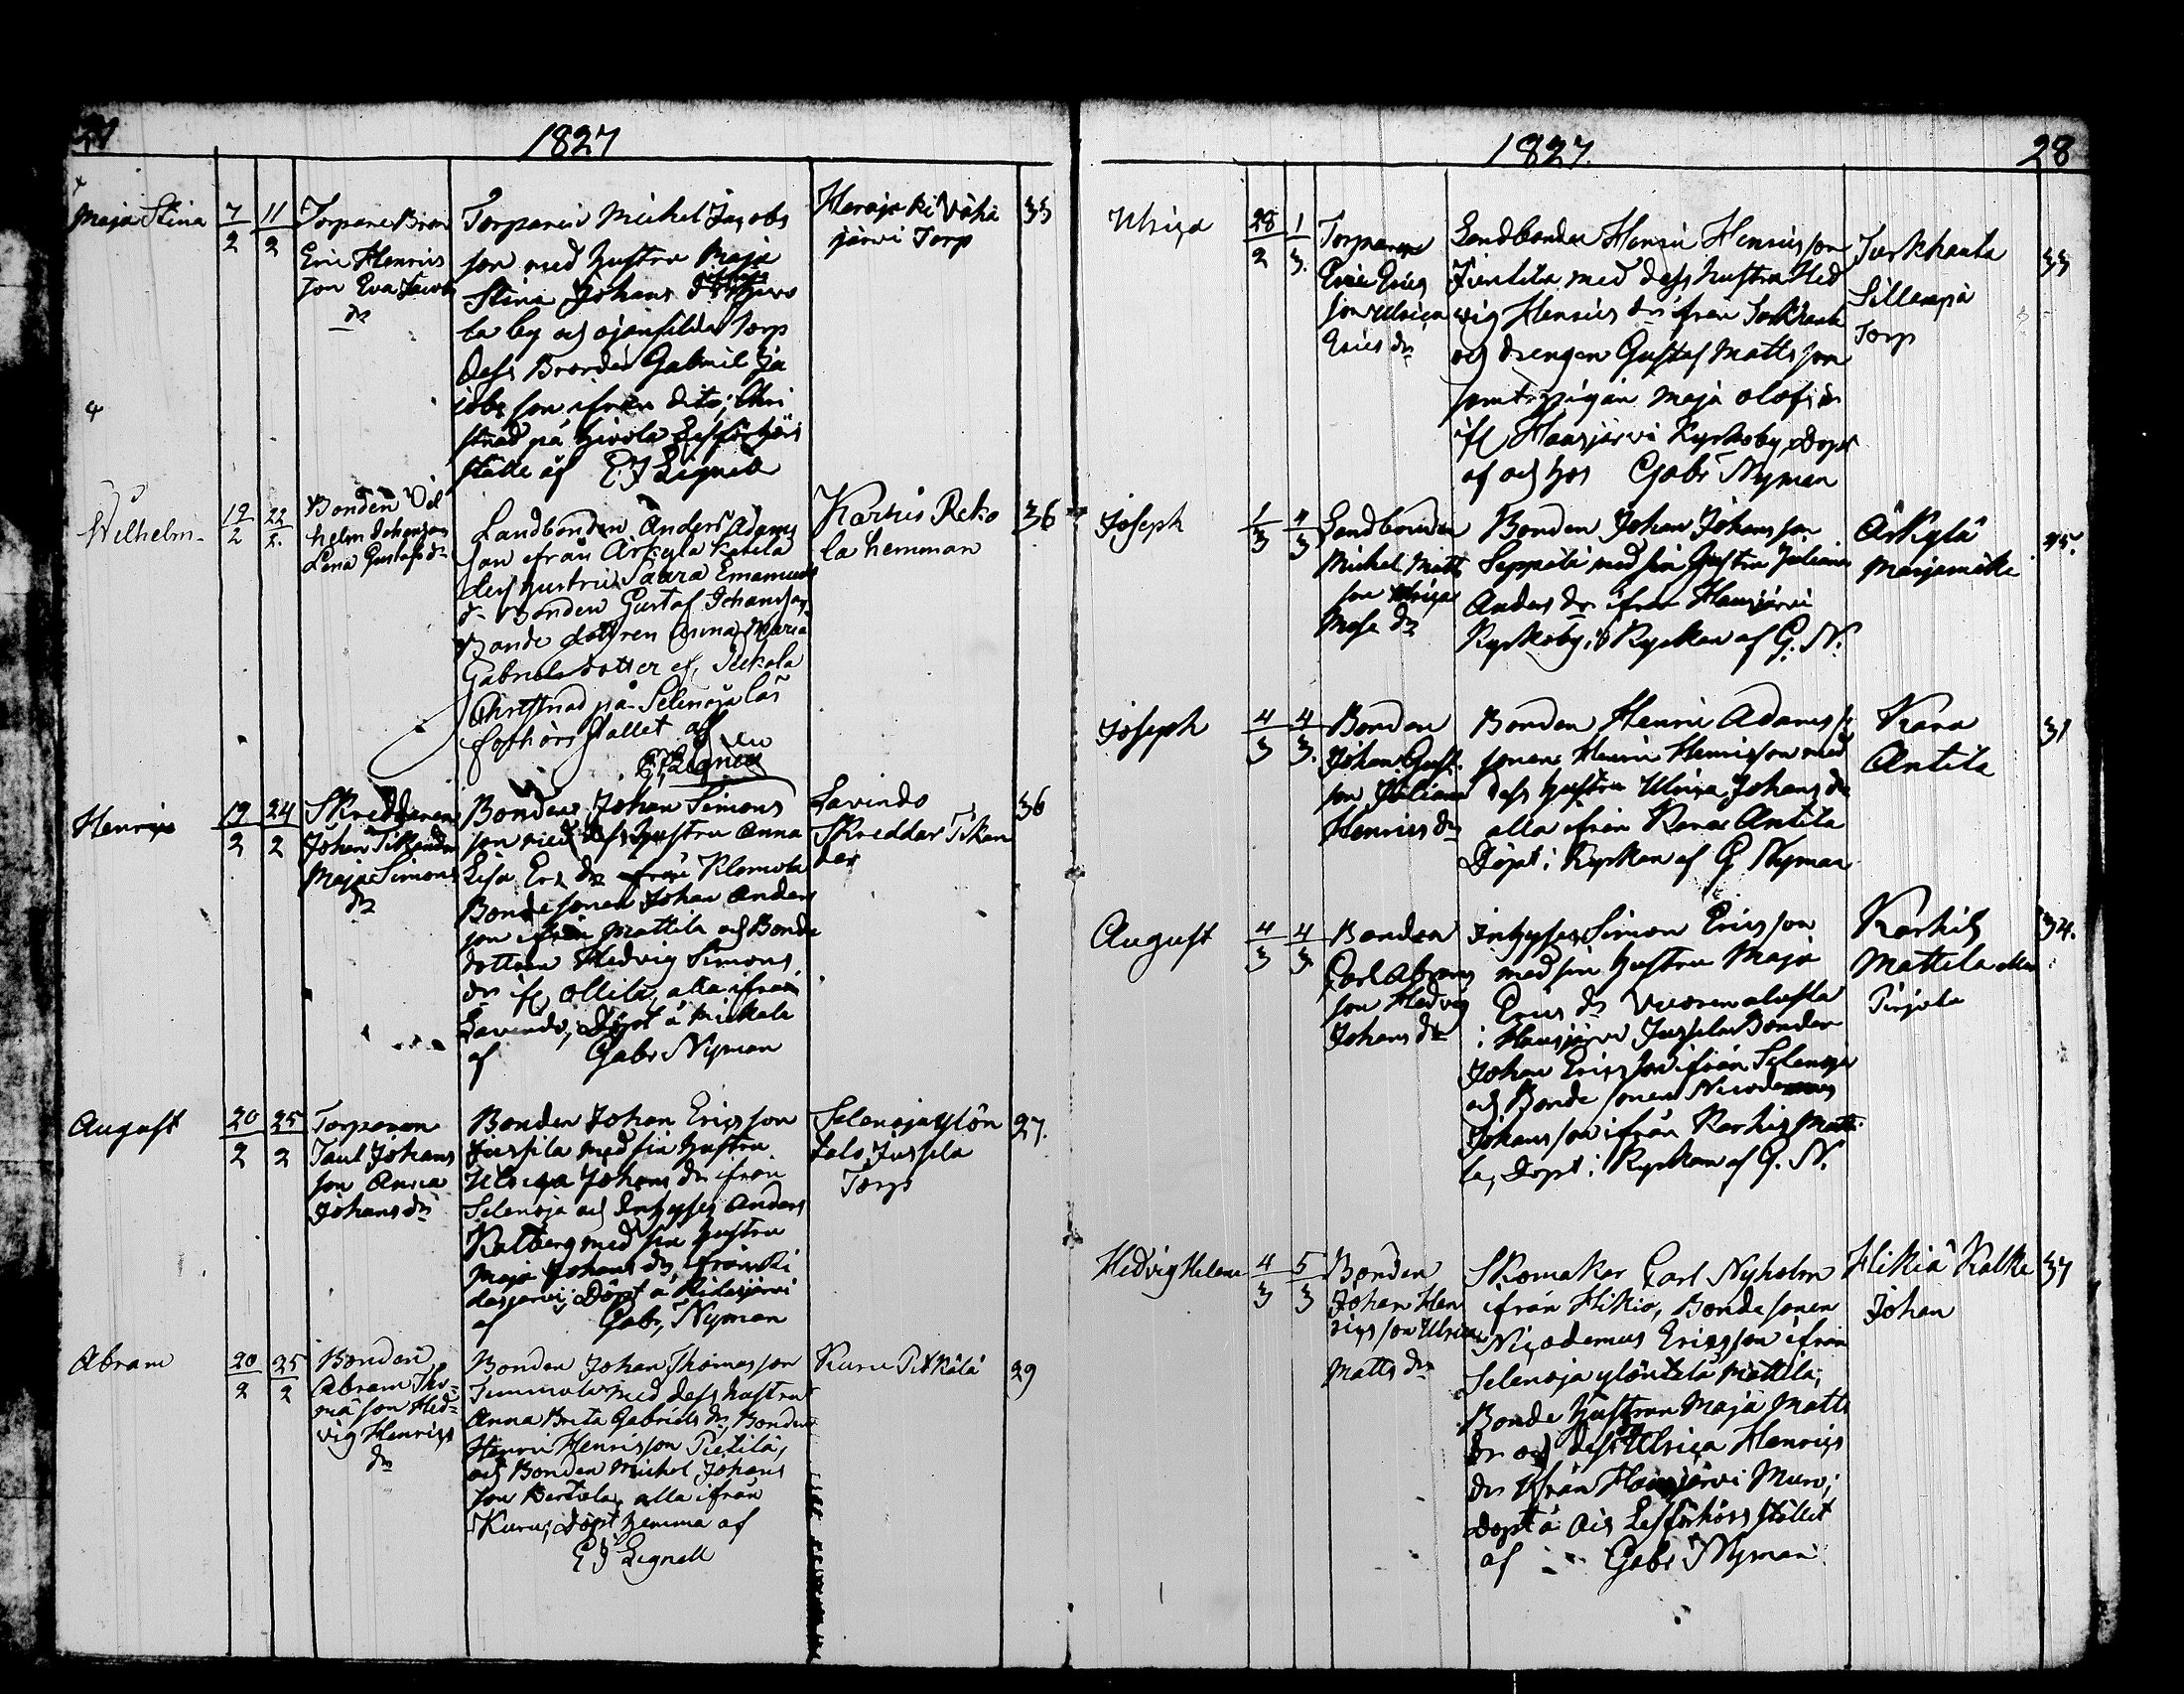 27
1827
Maja Stina
7/2
11/2
Eric Henrics
son Eva Jacobs
dr
Torparen Michel Jacobs
son med hustru Maja
Stina Johans dr
la by och Torp
dess Broder Gabriel Ja
cobs son ifrån dito; Chri
stnad på Läsförhörs
ställe af E J Lignell
Herajoki Vähä
järvi Torp
35
Wilhelm
19/2
22/2
Bonden Vil
helm Johansson
Lena Gustafs dr
Landbonden Anders Adams
son ifrån Ärkylä
dess hustru Saara Emanuels
dr Bonden Gustaf Johansson
Bonde dottren Anna Maria
Gabriels dotter
Christnad på Selenoja läs
förhörs stället af
E J Lignell
Karhis Reko
la hemman
36
Henric
19/2
24/2
Skreddaren
Johan Tikander
Maja Simons
dr
Bonden Johan Simons
son med dess hustru Anna
Lisa Er. dr från Klemola
Bondesonen Johan Anders
son ifrån Mattila och Bonde
dottren Hedvig Simons
dr if. Ollila, alla ifrån
Lavindo, Döpt å Mickala
af Gabr Nyman
Lavindo
Skreddar Tikan
der
36
August
20/2
25/2
Torparen
Paul Johans
son Anna
Johans dr
Bonden Johan Ericsson
Jussila med sin hustru
Ulrica Johans dr ifrån
Selenoja och Inhyses Anders
Kalberg med sin hustru
Maja Johans dr, ifrån Ki
desjärvi; Döpt å Kidesjärvi
af Gabr, Nyman
Selenoja ylön
talo Jussila
Torp
27.
Abram
20/2
25/2
Bonden
Abram Tho-
mæ son Hed-
vig Henrics
dr
Bonden Johan Thomasson
Temmola med dess hustru
Anna Brita Gabriels dr, Bonden
Henric Henricsson Pietilä,
och Bonden Michel Johans
son Bertula, alla ifrån
Kuru; Döpt hemma af
E J Lignell
Kuru Pitkälä
29
1827.
28
Ulrica
28/2
1/3.
Torparen
Eric Erics
son Ulrica
Erics dr
Landbonden Henric Henricsson
med dess hustru Hed
vig Henrics dr ifrån
och drengen Gustaf Mattsson
samt pigan Maja Olofs dr
if Hausjärvi Kyrkoby, Döpt
af och hos Gabr Nyman
Turkhauta
Sillanpä
Torp
33
Joseph
1/3
4/3
Landbonden
Michel Matts
son Ulrica
Mose dr
Bonden Johan Johansson
Seppälä med sin hustru Juliana
Anders dr ifrån Hausjärvi
Kyrkoby, i Kyrkan af G. N.
Ärkylä
Marjamäki
45.
Joseph
4/3
4/3.
Bonden
Johan Gust.
son Juliana
Henrics dr
Bonden Henric Adams
sonen Henric Henricsson med
dess hustru Ulrica Johans dr
alla ifrån Kara Antila
Döpt i Kyrkan af G Nyman
Kara
Antila
31
August
4/3
4/3
Bonden
Carl Abrams
son Hedvig
Johans dr
Inhyses Simon Ericsson
med sin hustru Maja
Erics dr
i Hausjärvi Jussila Bonden
Johan Ericsson ifrån Selenoja
och Bonde sonen Nicodemus
Johansson ifrån Karhis Matti
la, Döpt i Kyrkan af G. N.
Karhis
Mattila eller
Pirjola
34.
Hedvig Helena
4/3
5/3
Bonden
Johan Hen
ricsson Ulrica
Matts dr
Skomakar Carl Nyholm
ifrån Hikiä, Bonde sonen
Nicodemus Ericsson ifrån
Selenoja ylöntilä Mattila,
Bonde hustrun Maja Matts
dr och dess Ulrica Henrics
dr ifrån Hausjärvi Muro;
Döpt å Ois Läsförhörs stället
af Gabr Nyman
Hikiä Kalke
Johan
37